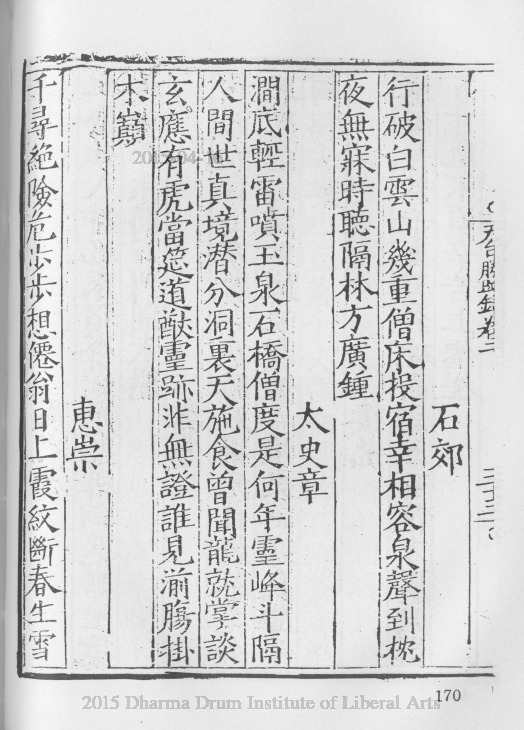 天台勝蹟錄卷二
二十三
石郊
行破白雲山幾重僧床投宿幸相容泉聲到枕
夜無寐時聽隔林方廣鍾
太史章
澗底輕雷噴玉泉石橋僧度是何年靈峰斗隔
人間世真境潜分洞裏天施食曾聞龍就掌談
玄應有虎當筵道猷靈跡非無證誰見湔腸掛
木巔
惠崇
千尋絕險危步步想僊翁日上霞紋斷春生雪
170
2015 Dharma Drum Institute of Liberal Arts